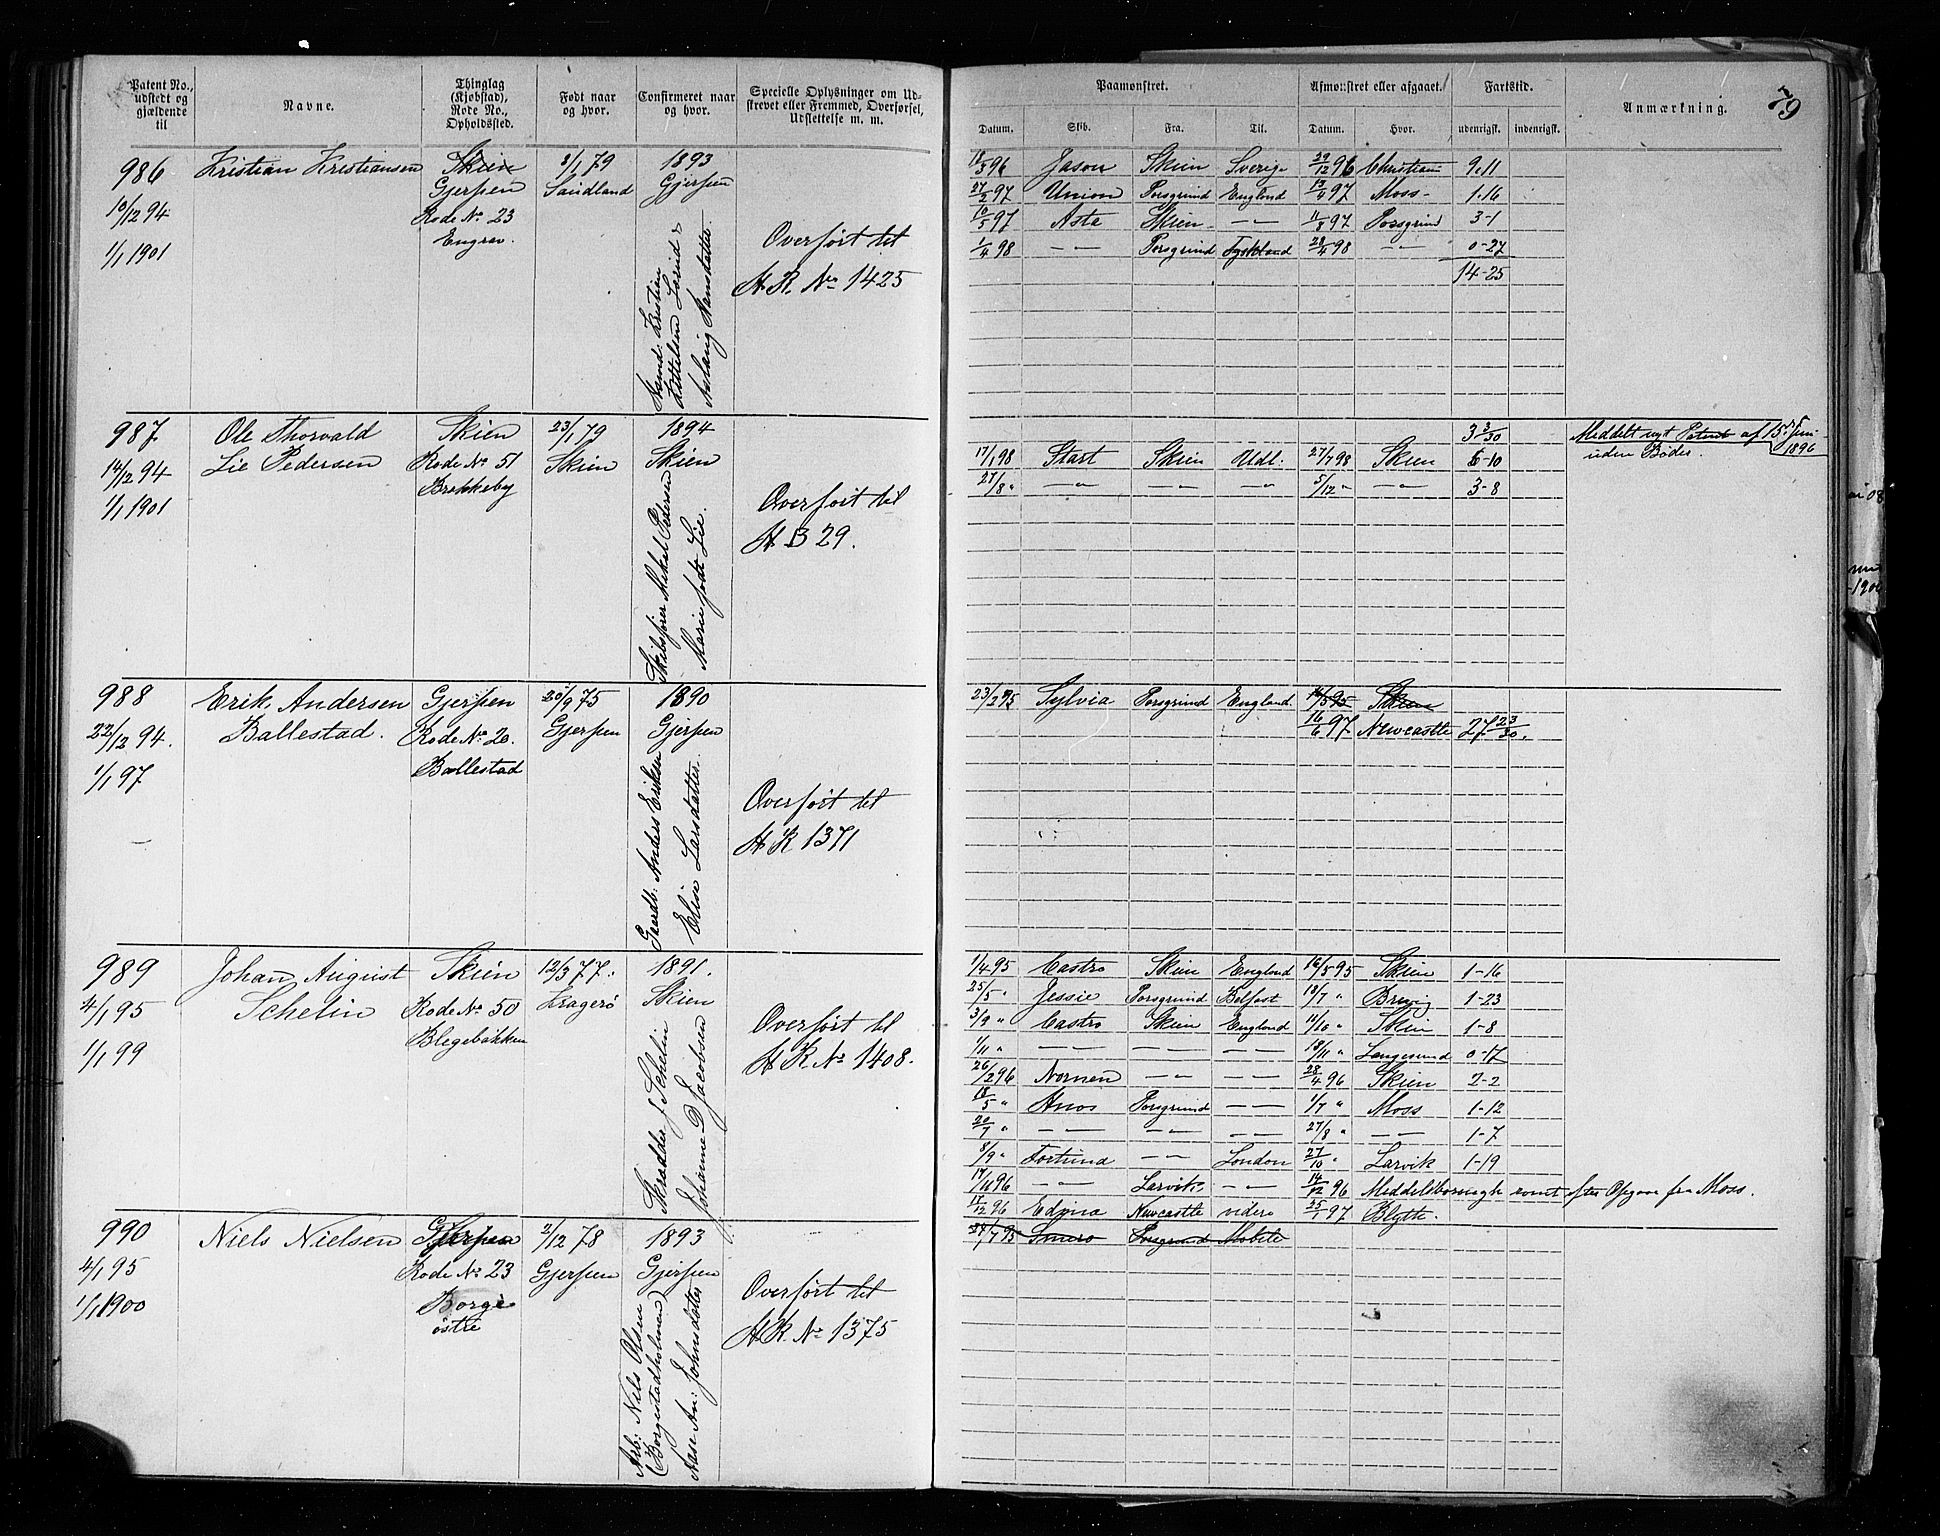 Patent No., udstedt og gjældende til | Navne. | Thinglag (Kjøbstad), Rode No., Opholdssted. | Født naar og hvor. | Confirmeret naar og hvor. | Specielle Oplysninger om Udskrevet eller Fremmed, Overførsel, Udslettelse m. m.
986 Kristian Kristiansen Skien 8/1 79 1893
Gjerpen Sandland Gjerpen
10/12 94 Rode No 23
Engrav.
1/1 1901
Kristian
Kittelsen
Aslaug Hansdatter
Overført til
A. K. No 1425
987 Ole Thorvald Skien 23/1 79 1894
14/12 94 Lie Pedersen Rode No 51 Skien Skien
Brekkeby
1/1 1901
Skibsfører Mikal Pedersen
Marie født Lie.
Overført til
A B 29.
988 Erik Andersen Gjerpen 20/9 75 1890
22/12 94. Ballestad. Rode No 20. Gjerpen Gjerpen
Ballestad
1/1 97
—
Gaardb: Anders Eriksen
Elise Larsdatter.
Overført til
A K 1371
989 Johan August Skien 12/3 77. 1891.
4/1 95 Schelin Rode No 50 Kragerø Skien
Blegebakken
1/1 99
Skrædder J Schelin
Johanne D Jacobsen
Overført til
A K No 1408.
990 Niels Nielsen Gjerpen 2/12 78 1893
4/1 95 Rode No 23 Gjerpen Gjerpen
1/1 1900 Borge
østre
Arb: Nils Olsen
(Borgestadholmen)
Aase An: Johnsdatter
Overført til
A K. No 1375
79
Paamønstret. | Afmønstret eller afgaaet. | Fartstid. | Anmærkning.
Datum. Skib. Fra. Til. Datum. Hvor. udenrigsk. indenrigsk.
18/3 96 Jason Skien Sverige 29/12 96 Christiania 9.11
27/2 97 Union Porsgrund England 13/4 97 Moss 1.16
10/5 97 Asta Skien — 11/8 97 Porsgrund 3-1
1/4 98 — Porsgrund Tyskland 28/4 98 — 0-27
14-25
3 3/30 Meddelt nyt Patent af 15de Juni 1896
uden Bøder.
17/1 98 Start Skien Udl. 27/7 98 Skien 6-10
27/8 " — — — 5/12 " — 3-8
23/2 95 Sylvia Porsgrund England 16/5 95 Skien
16/6 97 Newcastle 27 23/30.
1/4 95 Castro Skien England 16/5 95 Skien 1-16
25/5 " Jessie Porsgrund Belfast 18/7 " Brevig 1-23
3/9 " Castro Skien England 11/10 " Skien 1-8
1/11 " — — — 18/11 " Langesund 0-17
26/2 96 Nornen — — 28/4 96 Skien 2-2
18/5 " Amos Porsgrund — 1/7 " Moss 1-12
20/7 " — — — 27/8 " — 1-7
8/9 " Fortuna — London 27/10 " Larvik 1-19
17/11 96 — Larvik — 14/12 96 Middelsborough romt efter Opgave fra Moss.
17/12 96 Edina Newcastle videre 23/1 97 Blyth.
24/7 95 Porsgrund Mobile